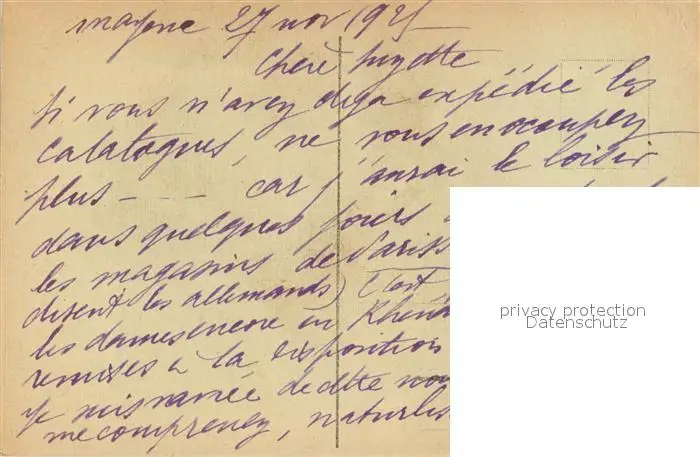 mayence 27 nov 1925
Chère Suzette
Si vous n'avez deja expédié les
catalogues, ne vous en occupez
plus - - - car j'aurai le loisir
dans quelques jours
les magasins de Pariss
disent les allemands) C'est
les dames encore en Rhén
remises à la disposition
je suis navrée de cette nou
me comprenez, naturlis
privacy protection
Datenschutz